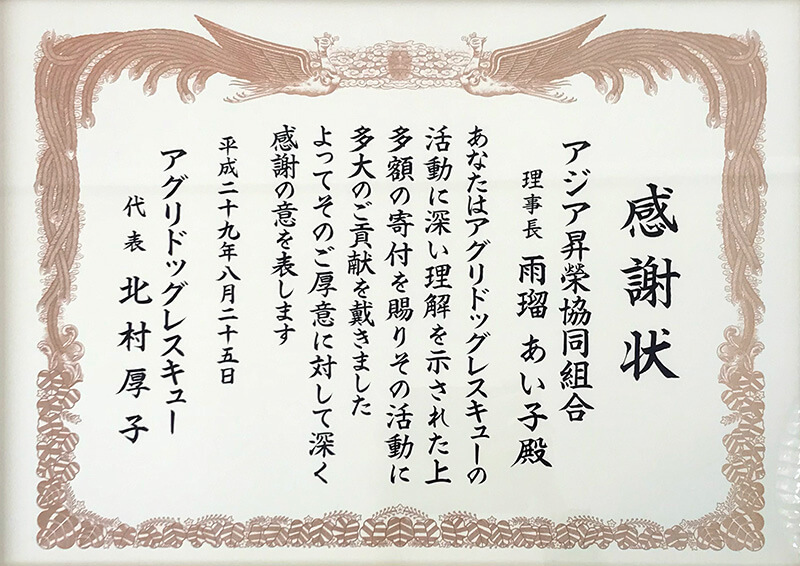 感謝状
アジア昇榮協同組合
理事長 雨瑠 あい子殿
あなたはアグリドッグレスキューの
活動に深い理解を示された上
多額の寄付を賜りその活動に
多大のご貢献を戴きました
よってそのご厚意に対して深く
感謝の意を表します
平成二十九年八月二十五日
アグリドッグレスキュー
代表 北村厚子